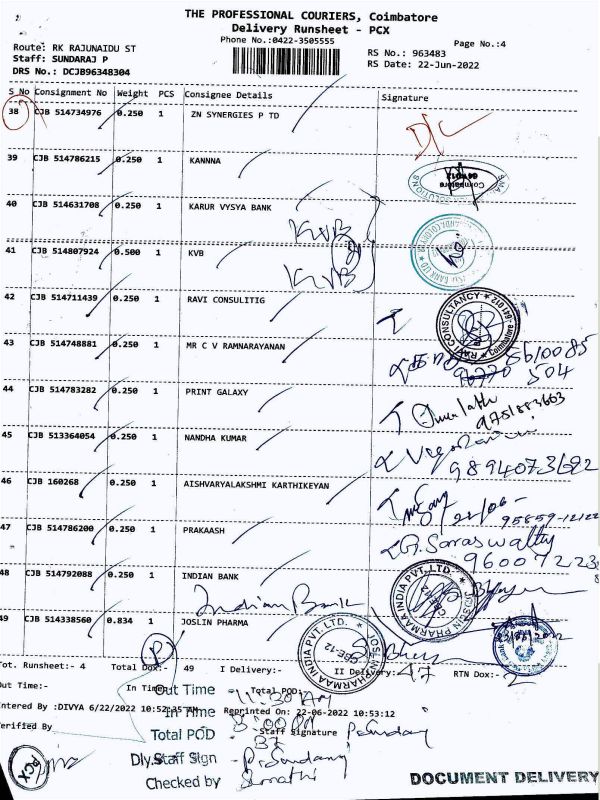 THE PROFESSIONAL COURIERS, Coimbatore
Delivery Runsheet - PCX
Phone No.:0422-3505555
Page No.:4
Route: RK RAJUNAIDU ST
RS No.: 963483
Staff: SUNDARAJ P
RS Date: 22-Jun-2022
DRS No.: DCJB96348304
S No Consignment No Weight PCS Consignee Details Signature
38 CJB 514734976 0.250 1 ZN SYNERGIES P TD D/C
39 CJB 514786215 0.250 1 KANNNA
Coimbatore
40 CJB 514631708 0.250 1 KARUR VYSYA BANK
KVB
41 CJB 514807924 0.500 1 KVB
KVB
42 CJB 514711439 0.250 1 RAVI CONSULITIG
RAVI CONSULTANCY Coimbatore 641 012
43 CJB 514748881 0.250 1 MR C V RAMNARAYANAN
504
44 CJB 514783282 0.250 1 PRINT GALAXY
9751883663
45 CJB 513364054 0.250 1 NANDHA KUMAR
9894073692
46 CJB 160268 0.250 1 AISHVARYALAKSHMI KARTHIKEYAN
22/06-
95859-12122
47 CJB 514786200 0.250 1 PRAKAASH
Saraswathy
48 CJB 514792088 0.250 1 INDIAN BANK
Indian Bank
JOSLIN PHARMAA INDIA PVT. LTD.
49 CJB 514338560 0.834 1 JOSLIN PHARMA
JOSLIN PHARMAA INDIA PVT. LTD.
CBE-12
P
Tot. Runsheet:- 4 Total Dox:- 49 I Delivery:- II Delivery:- 47 RTN Dox:- 2
Out Time:- In Time:- Total POD:-
Out Time - 11:30 AM
Entered By :DIVYA 6/22/2022 10:52:35 AM Reprinted On: 22-06-2022 10:53:12
In Time - 3:00 PM
Verified By Staff Signature P. Sundaraj
Total POD - 37
Dly.Staff Sign - P. Sundaraj
Checked by
PCX
DOCUMENT DELIVERY